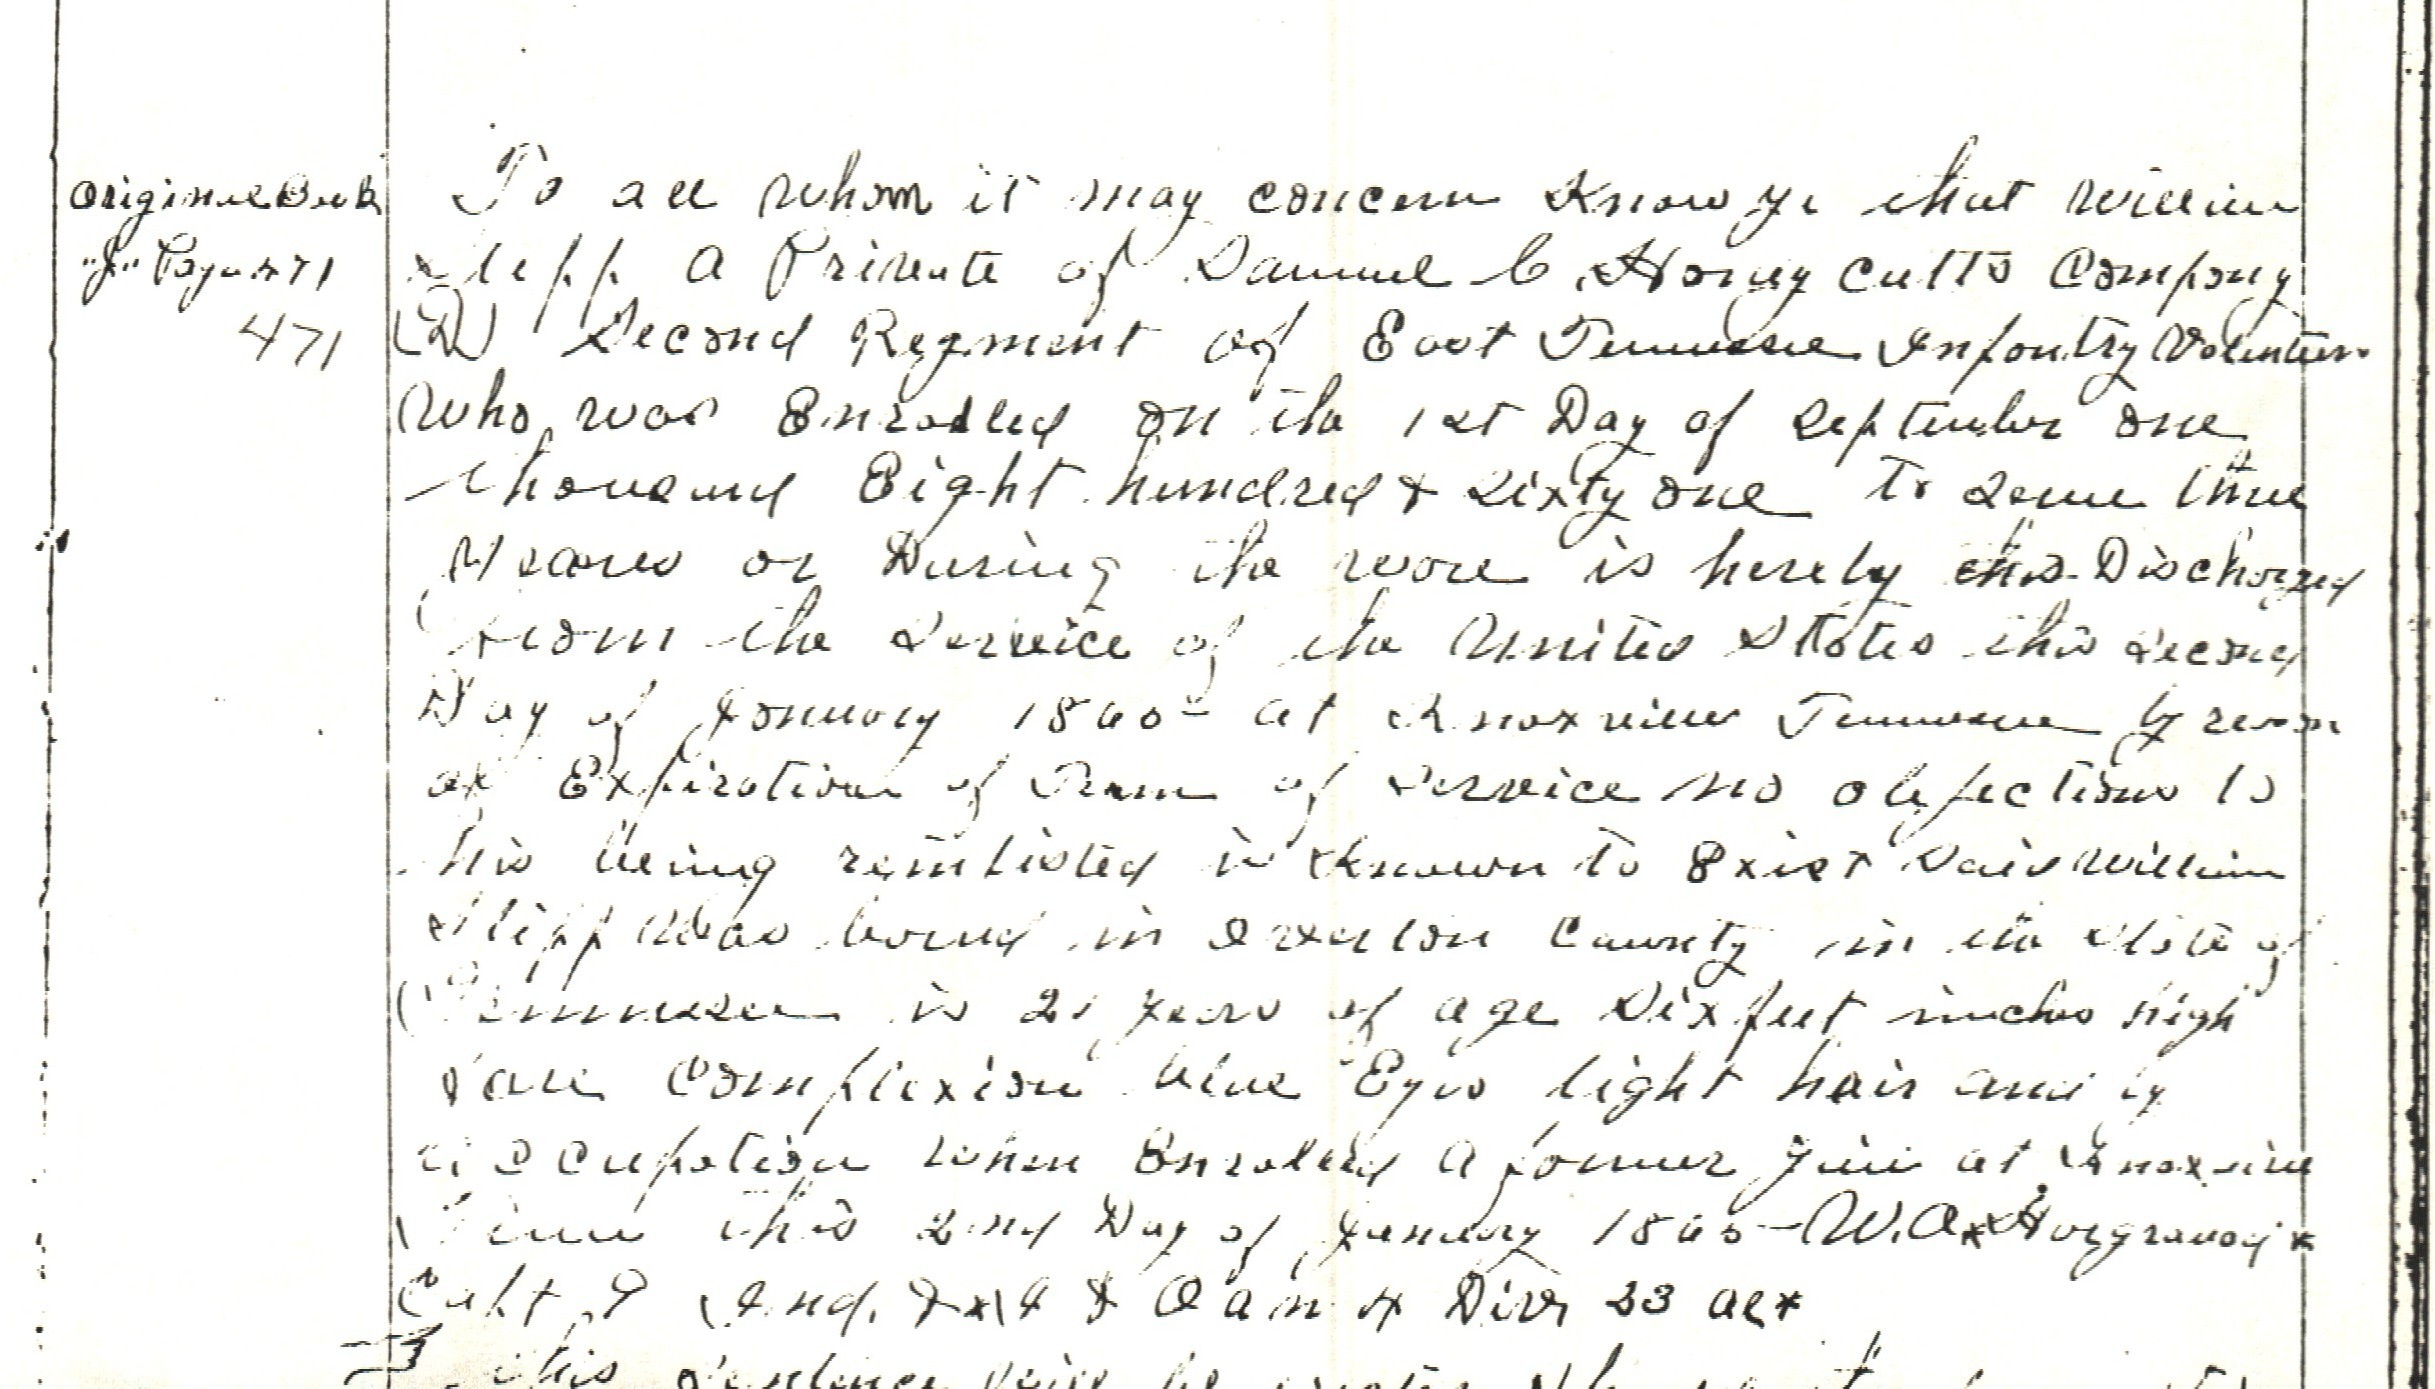 Original Book
"J" Page 471
471
To all whom it may concern Know ye that William
Slipp A Private of Samuel C Honey cutts Company
(D) Second Regment of East Tennessee Infantry Volunteers
Who was Enrolled on the 1st Day of September one
thousand Eight hundred & Sixty one to Serve three
Years or During the ware is hereby this Discharged
from the Service of the United States this Second
Day of January 1865 at Knoxville Tennessee by reason
of Expiration of Term of Service no objections to
his being reinlisted is known to Exist Said William
Slipp Was bornd in Overton County in the State of
Tennessee is 21 years of age Six feet inches high
fare Complexion blue Eyes light hair and by
occupation when Enrolled a farmer Givin at Knoxville
Tenn this 2nd Day of January 1865 - W. A. Hargraves
Capt Ind. & A Div 23 ac
this Sentence will be